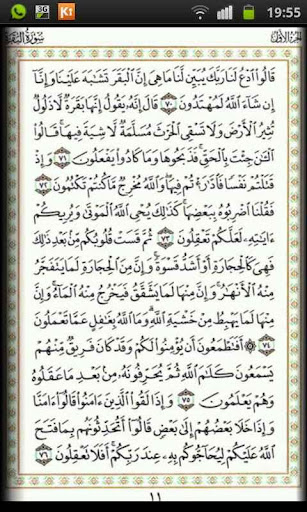 3G K1 19:55
سورة البقرة الجزء الأول
قَالُوا۟ ٱدْعُ لَنَا رَبَّكَ يُبَيِّن لَّنَا مَا هِىَ إِنَّ ٱلْبَقَرَ تَشَـٰبَهَ عَلَيْنَا وَإِنَّآ
إِن شَآءَ ٱللَّهُ لَمُهْتَدُونَ ٧٠ قَالَ إِنَّهُۥ يَقُولُ إِنَّهَا بَقَرَةٌ لَّا ذَلُولٌ
تُثِيرُ ٱلْأَرْضَ وَلَا تَسْقِى ٱلْحَرْثَ مُسَلَّمَةٌ لَّا شِيَةَ فِيهَا ۚ قَالُوا۟
ٱلْـَٔـٰنَ جِئْتَ بِٱلْحَقِّ ۚ فَذَبَحُوهَا وَمَا كَادُوا۟ يَفْعَلُونَ ٧١ وَإِذْ
قَتَلْتُمْ نَفْسًا فَٱدَّٰرَْٰٔتُمْ فِيهَا ۖ وَٱللَّهُ مُخْرِجٌ مَّا كُنتُمْ تَكْتُمُونَ ٧٢
فَقُلْنَا ٱضْرِبُوهُ بِبَعْضِهَا ۚ كَذَٰلِكَ يُحْىِ ٱللَّهُ ٱلْمَوْتَىٰ وَيُرِيكُمْ
ءَايَـٰتِهِۦ لَعَلَّكُمْ تَعْقِلُونَ ٧٣ ثُمَّ قَسَتْ قُلُوبُكُم مِّنۢ بَعْدِ ذَٰلِكَ
فَهِىَ كَٱلْحِجَارَةِ أَوْ أَشَدُّ قَسْوَةً ۚ وَإِنَّ مِنَ ٱلْحِجَارَةِ لَمَا يَتَفَجَّرُ
مِنْهُ ٱلْأَنْهَـٰرُ ۚ وَإِنَّ مِنْهَا لَمَا يَشَّقَّقُ فَيَخْرُجُ مِنْهُ ٱلْمَآءُ ۚ وَإِنَّ
مِنْهَا لَمَا يَهْبِطُ مِنْ خَشْيَةِ ٱللَّهِ ۗ وَمَا ٱللَّهُ بِغَـٰفِلٍ عَمَّا تَعْمَلُونَ
٧٤ ۞ أَفَتَطْمَعُونَ أَن يُؤْمِنُوا۟ لَكُمْ وَقَدْ كَانَ فَرِيقٌ مِّنْهُمْ
يَسْمَعُونَ كَلَـٰمَ ٱللَّهِ ثُمَّ يُحَرِّفُونَهُۥ مِنۢ بَعْدِ مَا عَقَلُوهُ
وَهُمْ يَعْلَمُونَ ٧٥ وَإِذَا لَقُوا۟ ٱلَّذِينَ ءَامَنُوا۟ قَالُوٓا۟ ءَامَنَّا
وَإِذَا خَلَا بَعْضُهُمْ إِلَىٰ بَعْضٍ قَالُوٓا۟ أَتُحَدِّثُونَهُم بِمَا فَتَحَ
ٱللَّهُ عَلَيْكُمْ لِيُحَآجُّوكُم بِهِۦ عِندَ رَبِّكُمْ ۚ أَفَلَا تَعْقِلُونَ ٧٦
١١